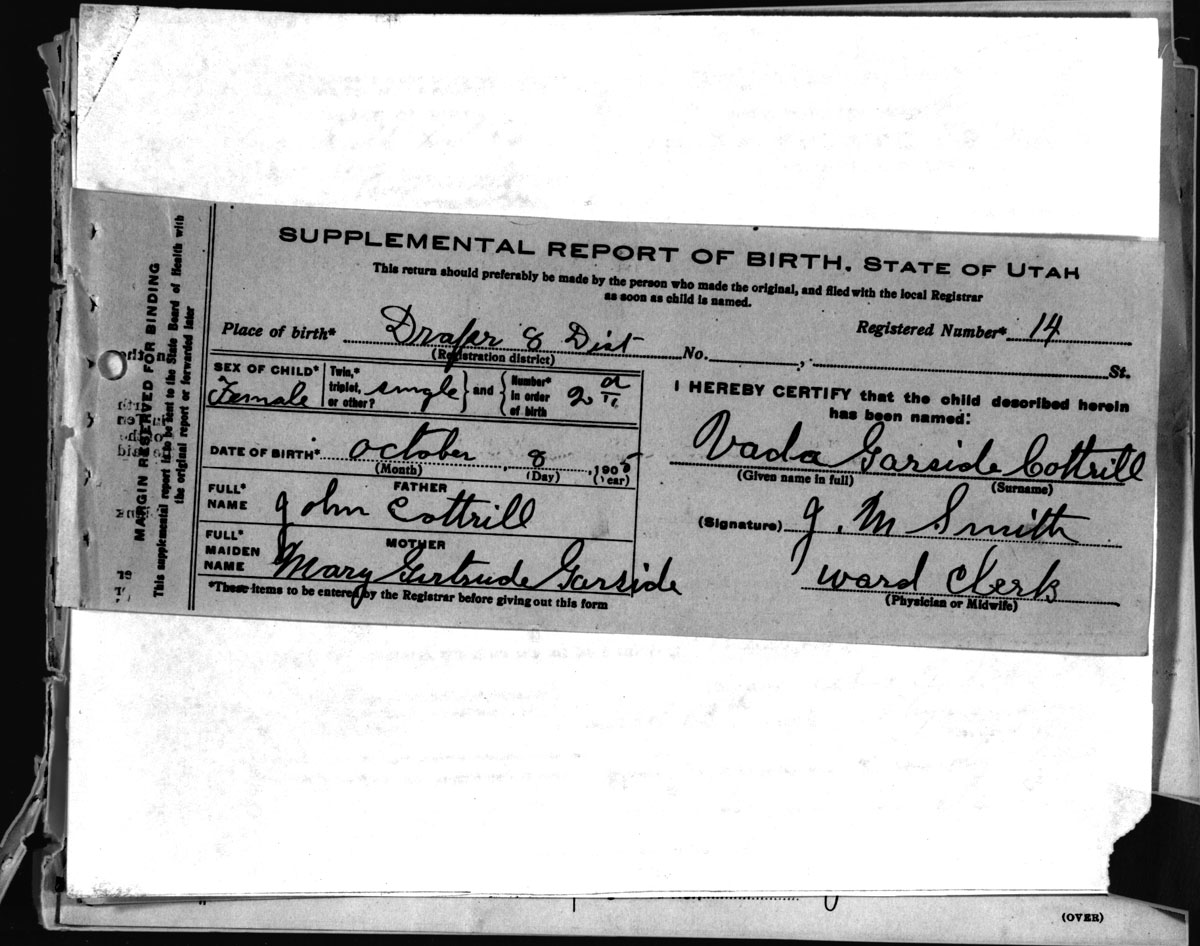 SUPPLEMENTAL REPORT OF BIRTH. STATE OF UTAH
This return should preferably be made by the person who made the original, and filed with the local Registrar
as soon as child is named.
Place of birth* Draper 8 Dist No. , St.
(Registration district)
Registered Number* 14
SEX OF CHILD* Female
Twin,* triplet, or other? single and Number* in order of birth 2d
DATE OF BIRTH* October 8, 190
(Month) (Day) (Year)
FATHER
FULL* NAME John Cottrill
MOTHER
FULL* MAIDEN NAME Mary Gertrude Garside
*These items to be entered by the Registrar before giving out this form
I HEREBY CERTIFY that the child described herein
has been named:
Vada Garside Cottrill
(Given name in full) (Surname)
(Signature) J. M Smith
Ward Clerk
(Physician or Midwife)
MARGIN RESERVED FOR BINDING
This supplemental report is to be sent to the State Board of Health with
the original report or forwarded later
(OVER)